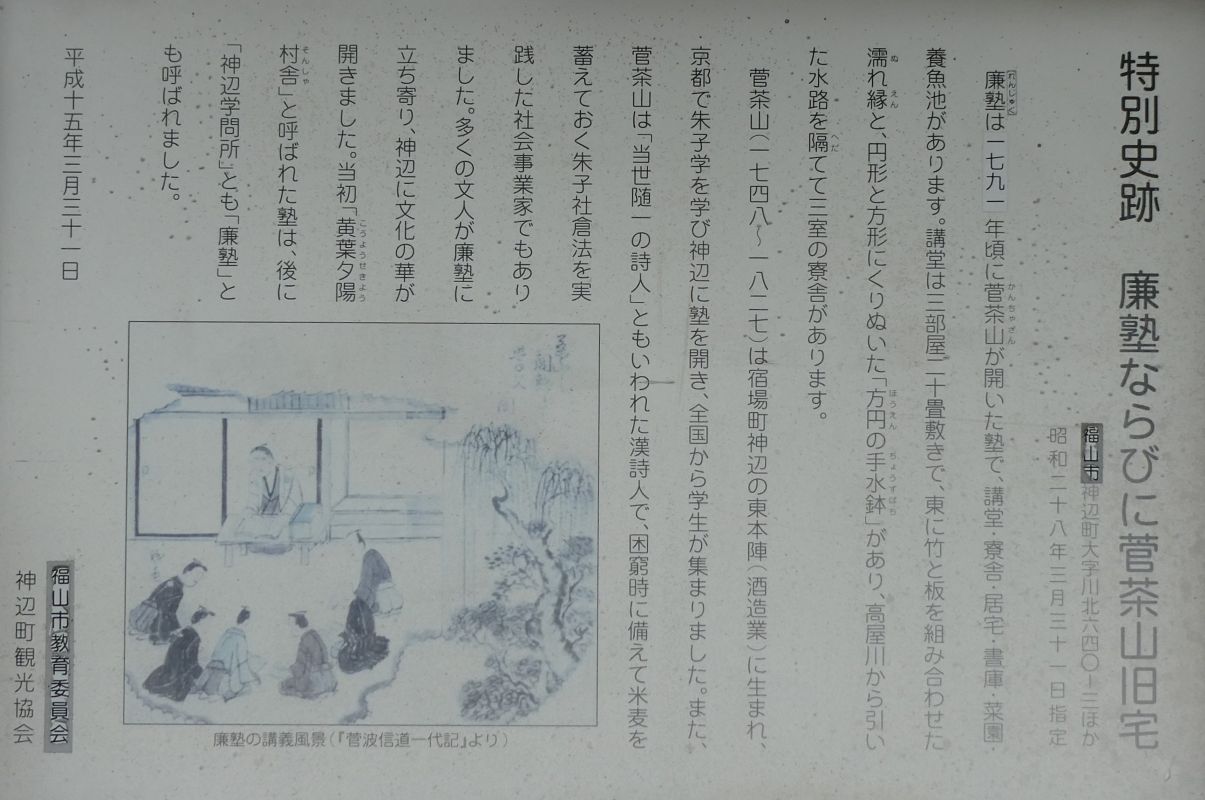 特別史跡　廉塾ならびに菅茶山旧宅
福山市神辺町大字川北六四〇ー三ほか
昭和二十八年三月三十一日指定
廉塾は一七九一年頃に菅茶山が開いた塾で、講堂・寮舎・居宅・書庫・菜園
養魚池があります。講堂は三部屋二十畳敷きで、東に竹と板を組み合わせた
濡れ縁と、円形と方形にくりぬいた「方円の手水鉢」があり、高屋川から引い
た水路を隔てて三室の寮舎があります。
菅茶山(一七四八〜一八二七)は宿場町神辺の東本陣(酒造業)に生まれ、
京都で朱子学を学び神辺に塾を開き、全国から学生が集まりました。また、
菅茶山は「当世随一の詩人」ともいわれた漢詩人で、困窮時に備えて米麦を
蓄えておく朱子社倉法を実
践した社会事業家でもあり
ました。多くの文人が廉塾に
立ち寄り、神辺に文化の華が
開きました。当初「黄葉夕陽
村舎」と呼ばれた塾は、後に
「神辺学問所」とも「廉塾」と
も呼ばれました。
平成十五年三月三十一日
福山市教育委員会
神辺町観光協会
廉塾の講義風景(『菅波信道一代記』より)